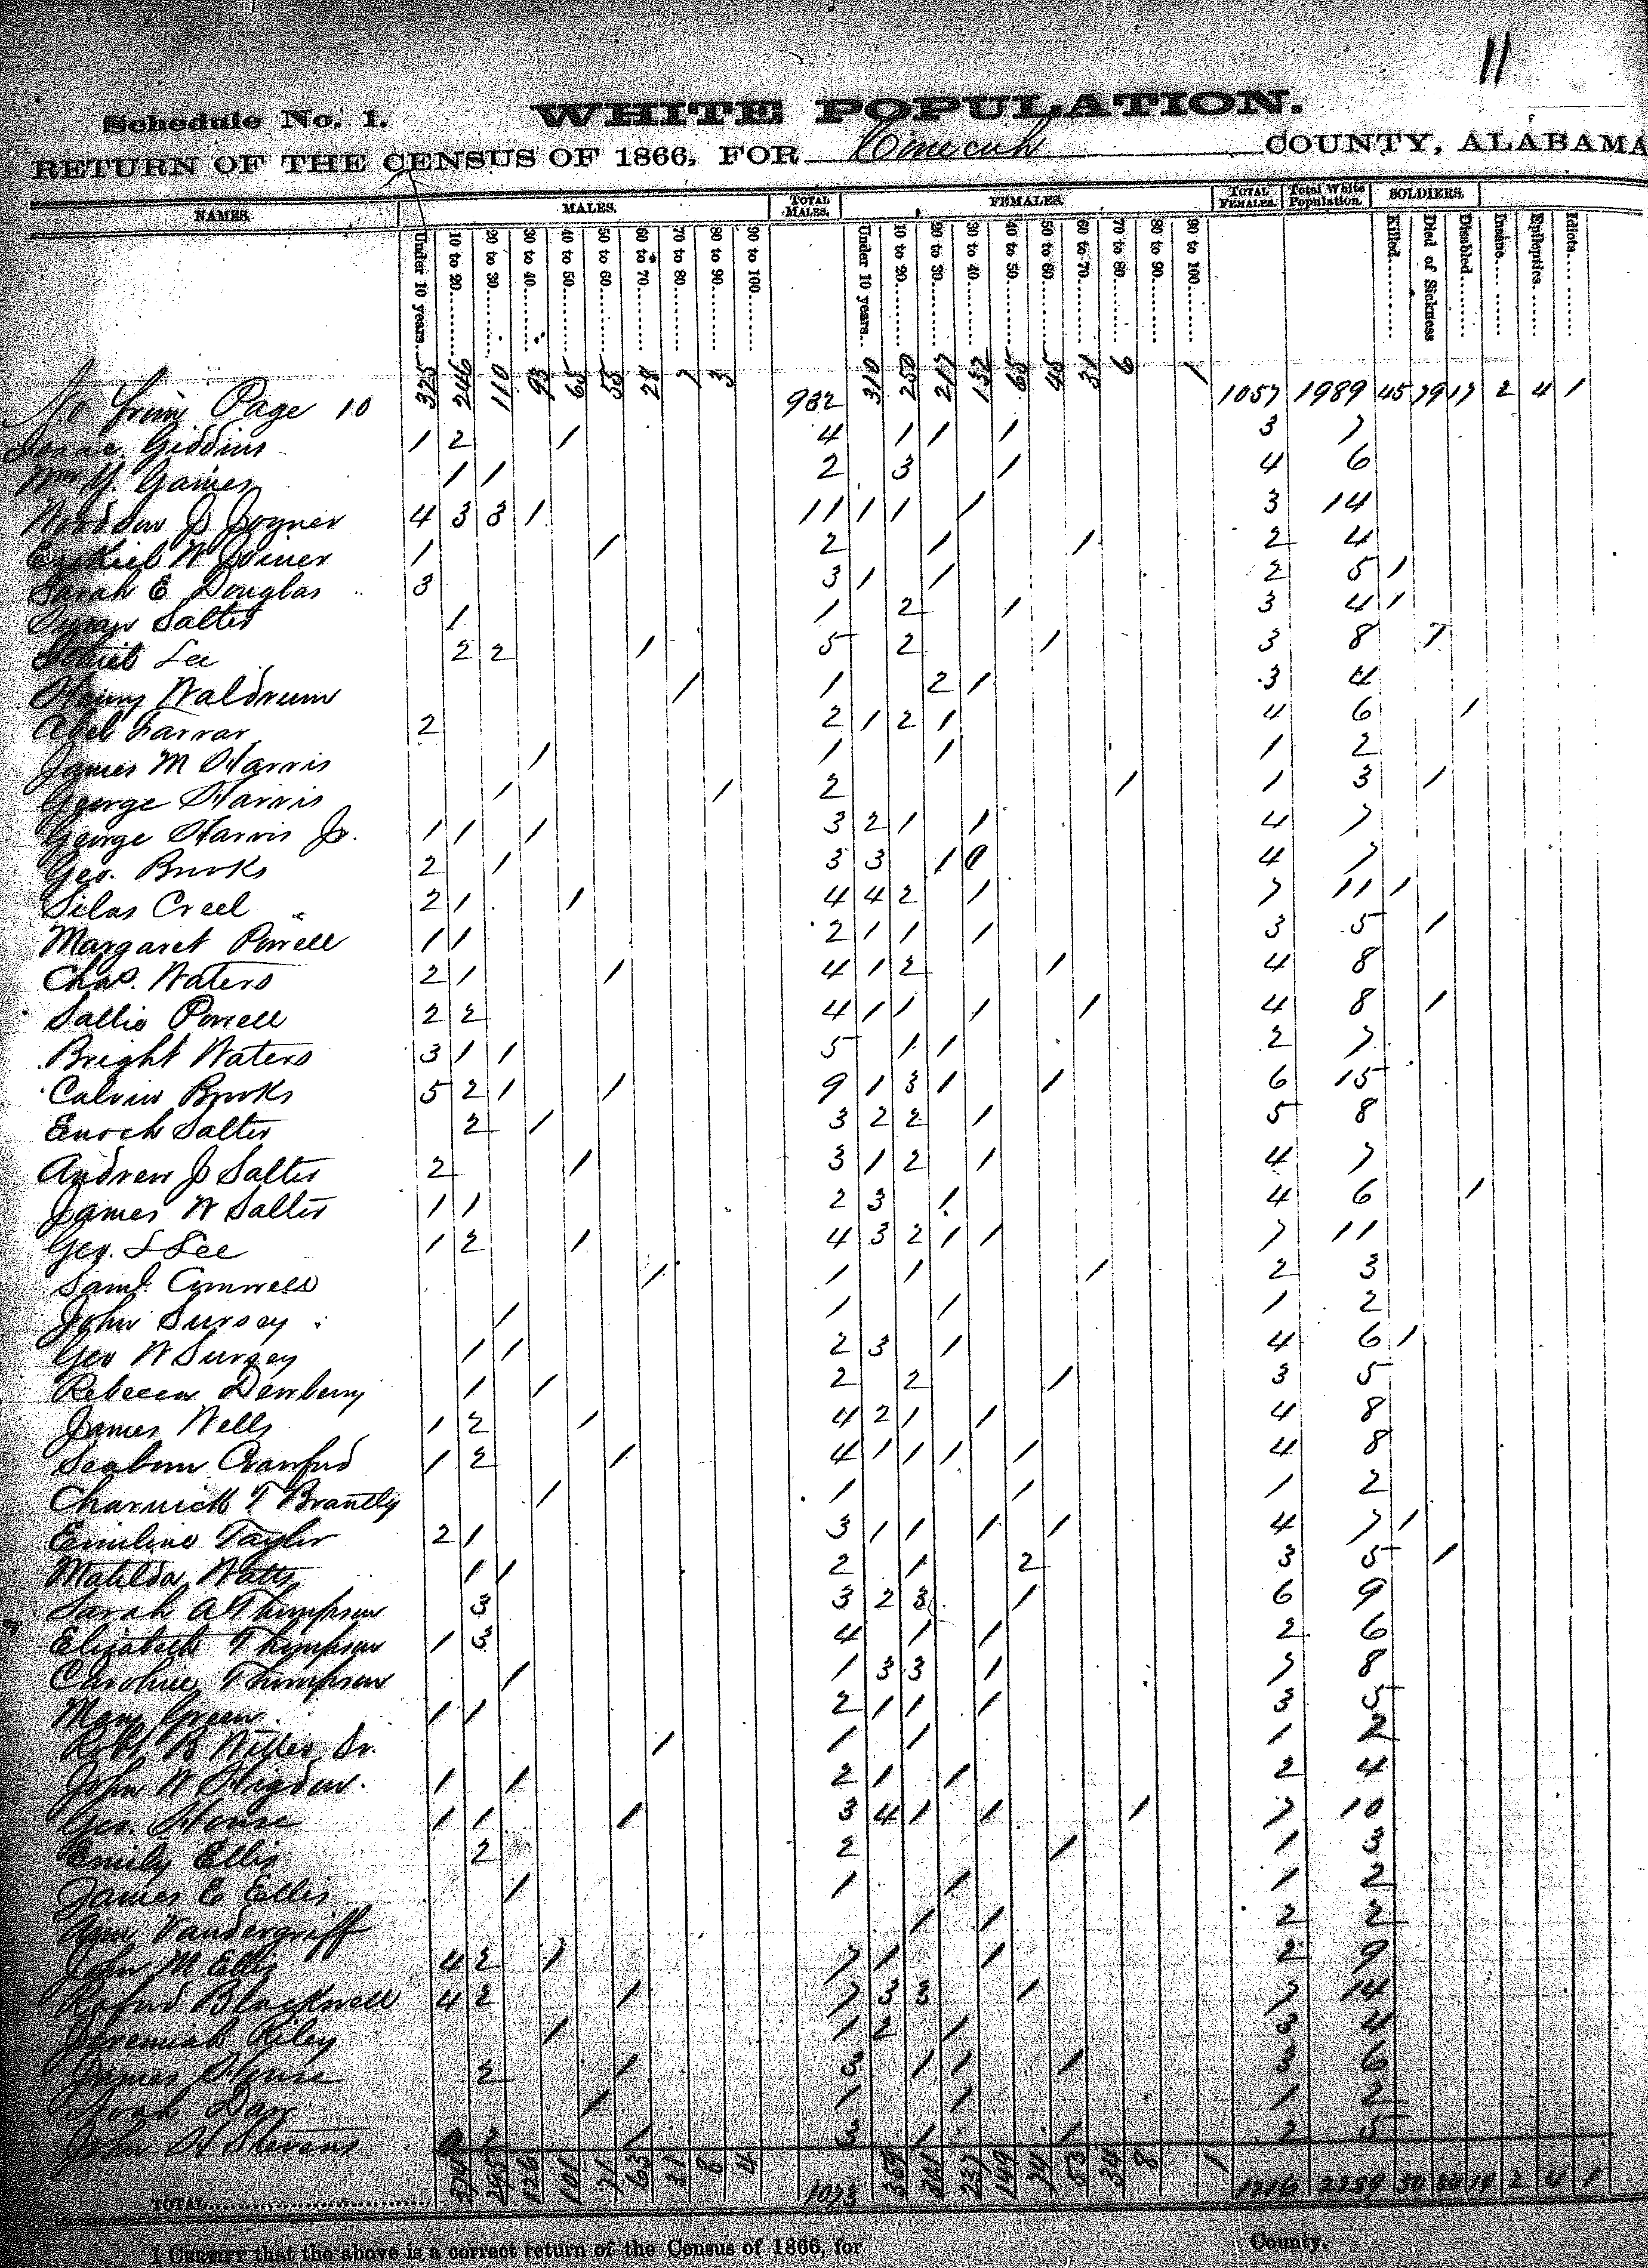 11
Schedule No. 1. WHITE POPULATION.
RETURN OF THE CENSUS OF 1866, FOR Conecuh COUNTY, ALABAMA
NAMES. MALES. TOTAL MALES. FEMALES. TOTAL FEMALES. Total White Population. SOLDIERS.
Under 10 years 10 to 20 20 to 30 30 to 40 40 to 50 50 to 60 60 to 70 70 to 80 80 to 90 90 to 100 Under 10 years 10 to 20 20 to 30 30 to 40 40 to 50 50 to 60 60 to 70 70 to 80 80 to 90 90 to 100 Killed Died of Sickness Disabled Insane Epileptics Idiots
from Page 10 325 246 110 93 65 55 28 7 3 932 310 250 217 132 65 45 31 6 1 1057 1989 45 79 17 2 4 1
Isaac Giddins 1 2 1 4 1 1 1 3 7
Wm Y. Gaines 1 1 2 3 1 4 6
J Joyner 4 3 3 1 11 1 1 1 3 14
Ezekiel W Joiner 1 1 2 1 1 2 4
Sarah E Douglas 3 3 1 1 2 5 1
Salter 1 1 2 1 3 4 1
Lee 2 2 1 5 2 1 3 8 7
Henry Waldrum 1 1 2 1 3 4
Abel Farrar 2 2 1 2 1 4 6 1
James M Harris 1 1 1 1 2
George Harris 1 1 2 1 1 3 1
George Harris Jr. 1 1 1 3 2 1 1 4 7
Geo. Brooks 2 1 3 3 1 0 4 7
Silas Creel 2 1 1 4 4 2 1 7 11 1
Margaret Powell 1 1 2 1 1 1 3 5 1
Chas. Waters 2 1 1 4 1 2 1 4 8
Sallie Powell 2 2 4 1 1 1 1 4 8 1
Bright Waters 3 1 1 5 1 1 2 7
Calvin Brooks 5 2 1 1 9 1 3 1 1 6 15
Enoch Salter 2 1 3 2 2 1 5 8
Andrew J Salter 2 1 3 1 2 1 4 7
James W Salter 1 1 2 3 1 4 6 1
Geo. S Lee 1 2 1 4 3 2 1 1 7 11
Saml. 1 1 1 1 2 3
John Sursey 1 1 1 1 2
Geo W Sursey 1 1 2 3 1 4 6 1
Rebecca Dewberry 1 1 2 2 1 3 5
James Wells 1 2 1 4 2 1 1 4 8
Seaborn Crawford 1 2 1 4 1 1 1 1 4 8
Charnick T Brantly 1 1 1 1 2
Emiline Taylor 2 1 3 1 1 1 1 4 7 1
Matilda Watts 1 1 2 1 2 3 5 1
Sarah A Thompson 3 3 2 3 1 6 9
Elizabeth Thompson 1 3 4 1 1 2 6
Caroline Thompson 1 1 3 3 1 7 8
Mary Green 1 1 2 1 1 1 3 5
Robt. B Sr. 1 1 1 1 2
John W Higdon. 1 1 2 1 1 2 4
Geo. House 1 1 1 3 4 1 1 1 7 10
Emily Ellis 2 2 1 1 3
James E Ellis 1 1 1 1 2
Ann Vandergriff 1 1 2 2
John M Ellis 4 2 1 7 1 1 2 9
Blackwell 4 2 1 7 3 3 1 7 14
Jeremiah Riley 1 1 2 1 3 4
James House 2 1 3 1 1 1 3 6
Noah 1 1 1 1 2
John Stevens 2 1 3 1 1 2 5
TOTAL 295 126 101 71 63 31 8 4 1073 237 149 53 34 8 1 1216 2289 50 84 19 2 4 1
I CERTIFY that the above is a correct return of the Census of 1866, for County.